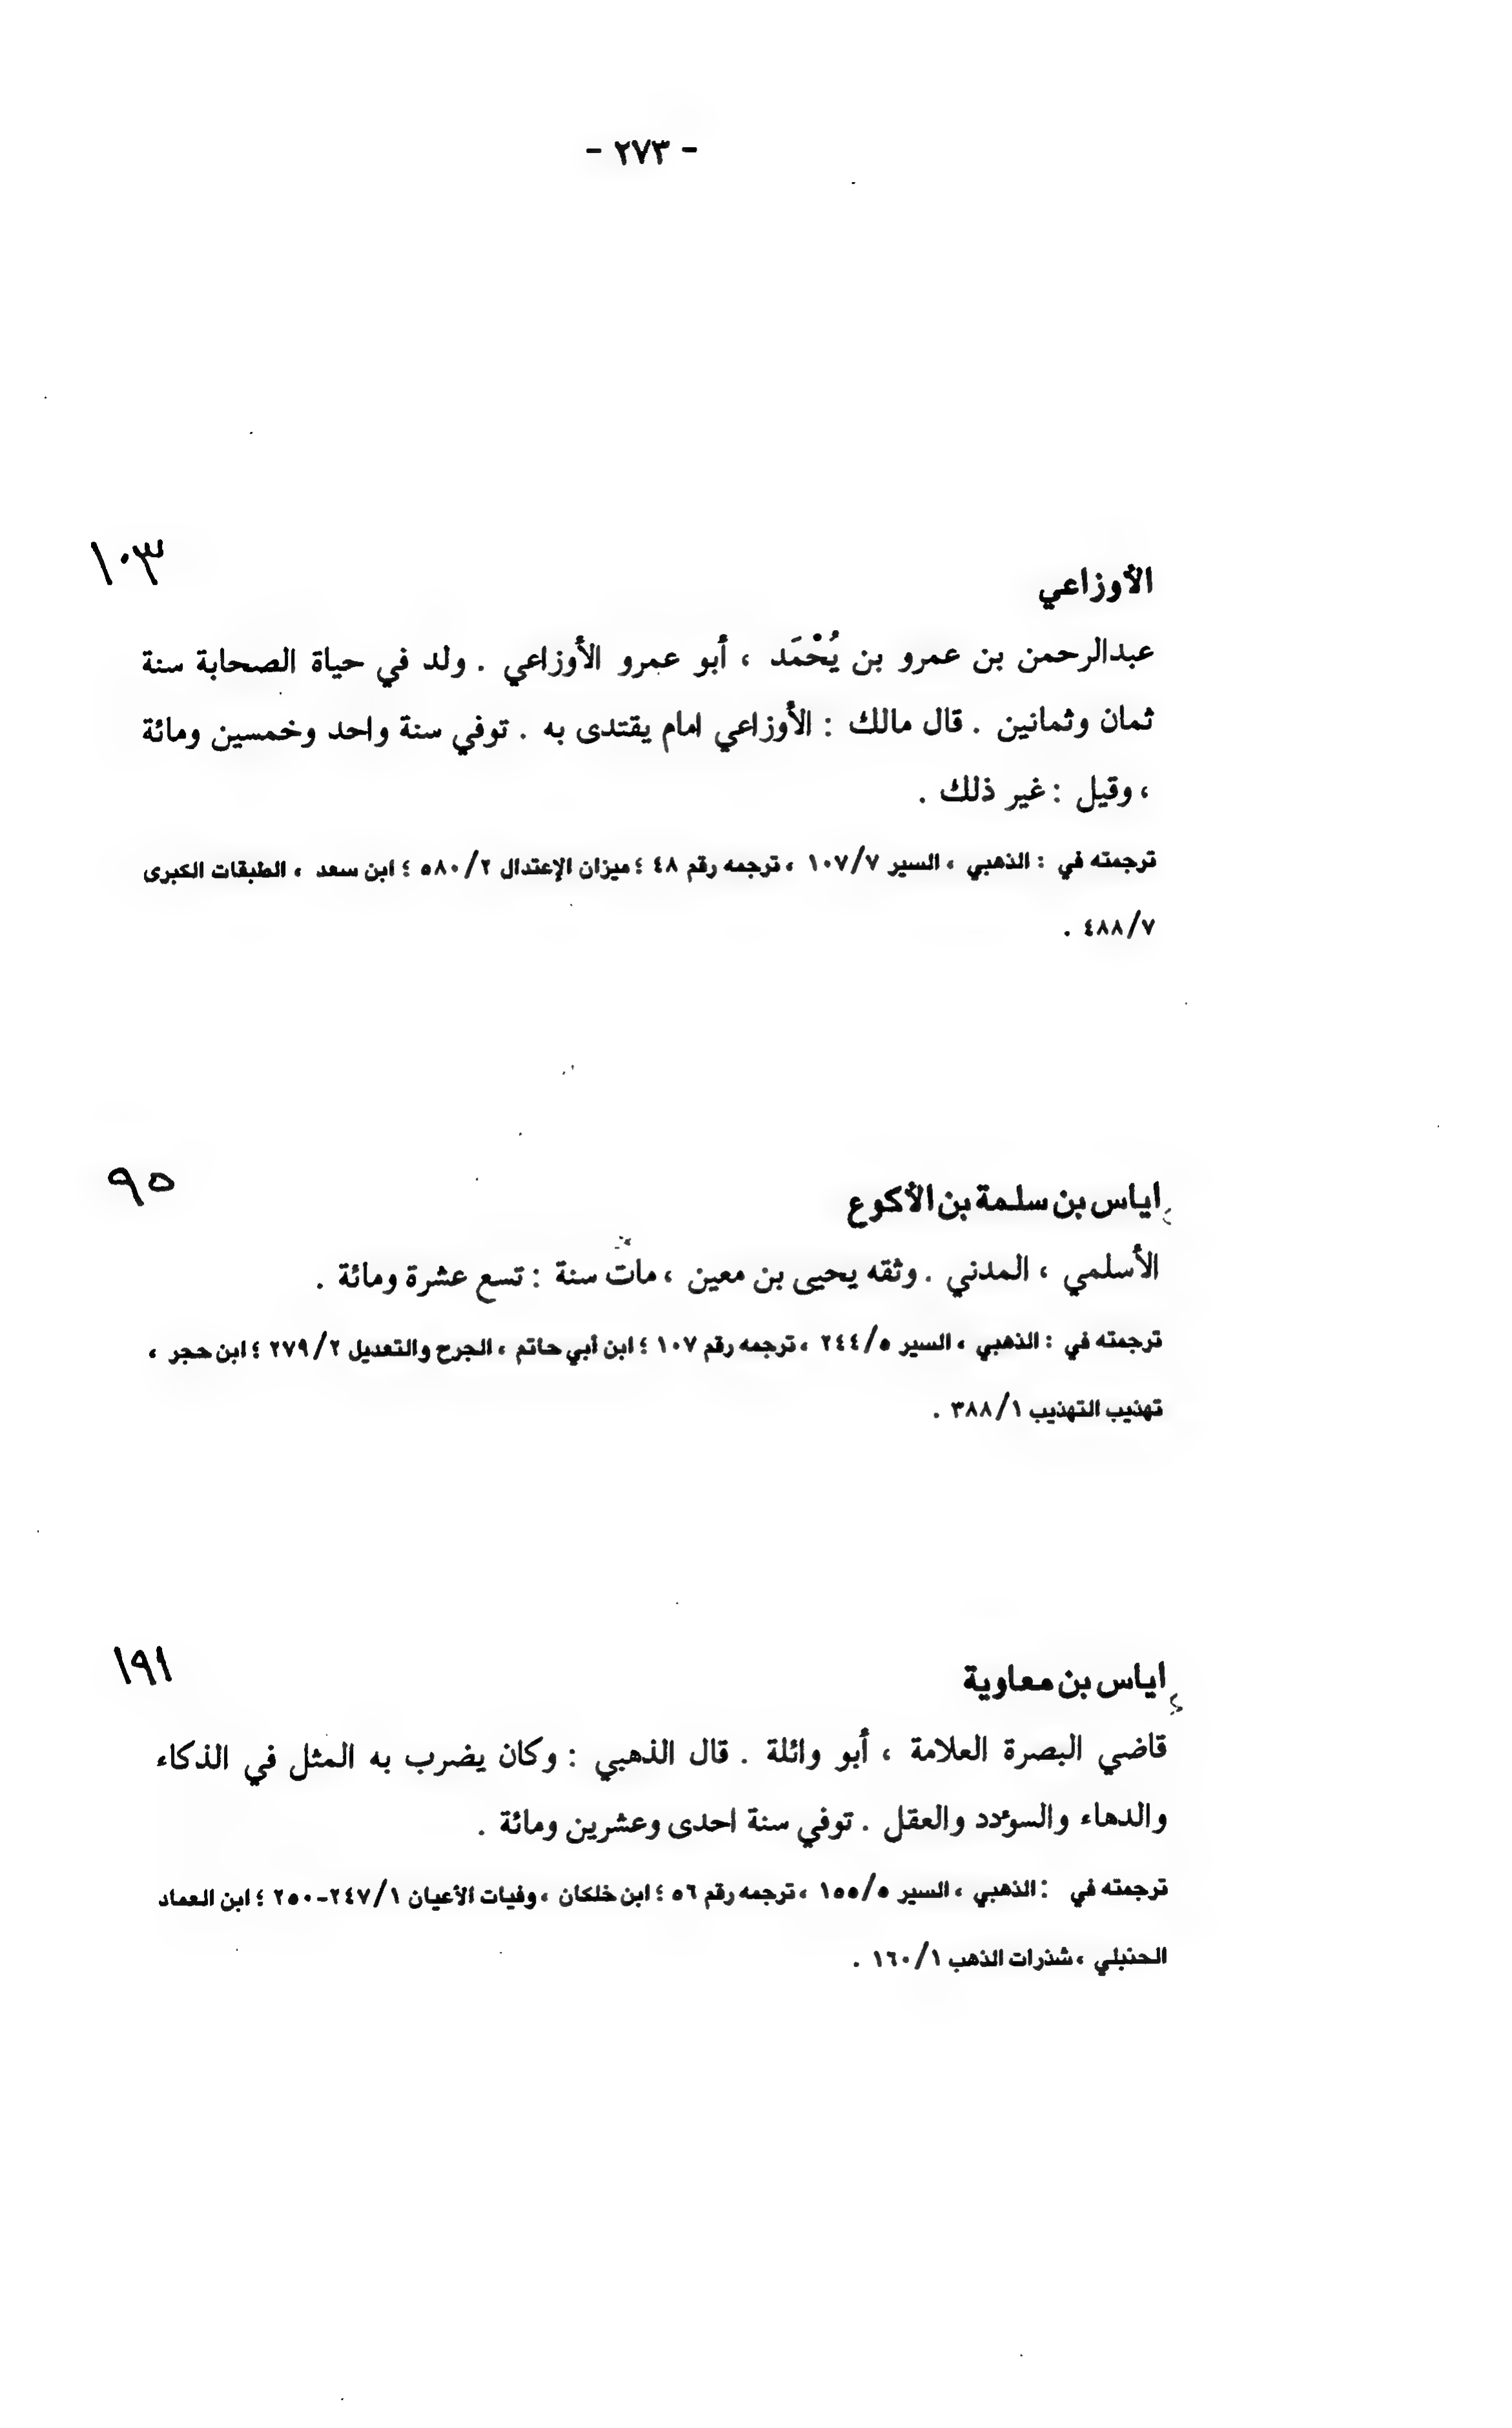 - ٢٧٣ -
١٠٣
الأوزاعي
عبدالرحمن بن عمرو بن يُحْمَد ، أبو عمرو الأوزاعي . ولد في حياة الصحابة سنة
ثمان وثمانين . قال مالك : الأوزاعي امام يقتدى به . توفي سنة واحد وخمسين ومائة
، وقيل : غير ذلك .
ترجمته في : الذهبي ، السير ١٠٧/٧ ، ترجمه رقم ٤٨ ؛ ميزان الإعتدال ٥٨٠/٢ ؛ ابن سعد ، الطبقات الكبرى
٤٨٨/٧ .
٩٥
اياس بن سلمة بن الأكوع
الأسلمي ، المدني . وثقه يحيى بن معين ، مات سنة : تسع عشرة ومائة .
ترجمته في : الذهبي ، السير ٢٤٤/٥ ، ترجمه رقم ١٠٧ ؛ ابن أبي حاتم ، الجرح والتعديل ٢٧٩/٢ ؛ ابن حجر ،
تهذيب التهذيب ٣٨٨/١ .
١٩١
اياس بن معاوية
قاضي البصرة العلامة ، أبو وائلة . قال الذهبي : وكان يضرب به المثل في الذكاء
والدهاء والسؤدد والعقل . توفي سنة احدى وعشرين ومائة .
ترجمته في : الذهبي ، السير ١٥٥/٥ ، ترجمه رقم ٥٦ ؛ ابن خلكان ، وفيات الأعيان ٢٤٧/١-٢٥٠ ؛ ابن العماد
الحنبلي ، شذرات الذهب ١٦٠/١ .